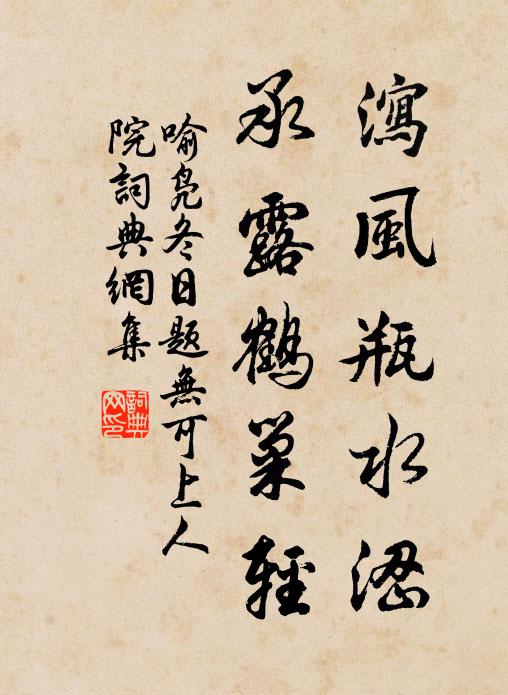 瀉風瓶水澀
承露鶴巢輕
喻鳧冬日題無可上人
院詞典網集
詞典网印